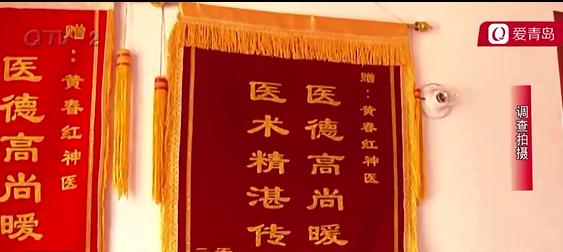 QTV-2
爱青岛
调查拍摄
赠：黄春红神医
医德高尚暖
赠：黄春红神医
医德高尚暖
医术精湛传